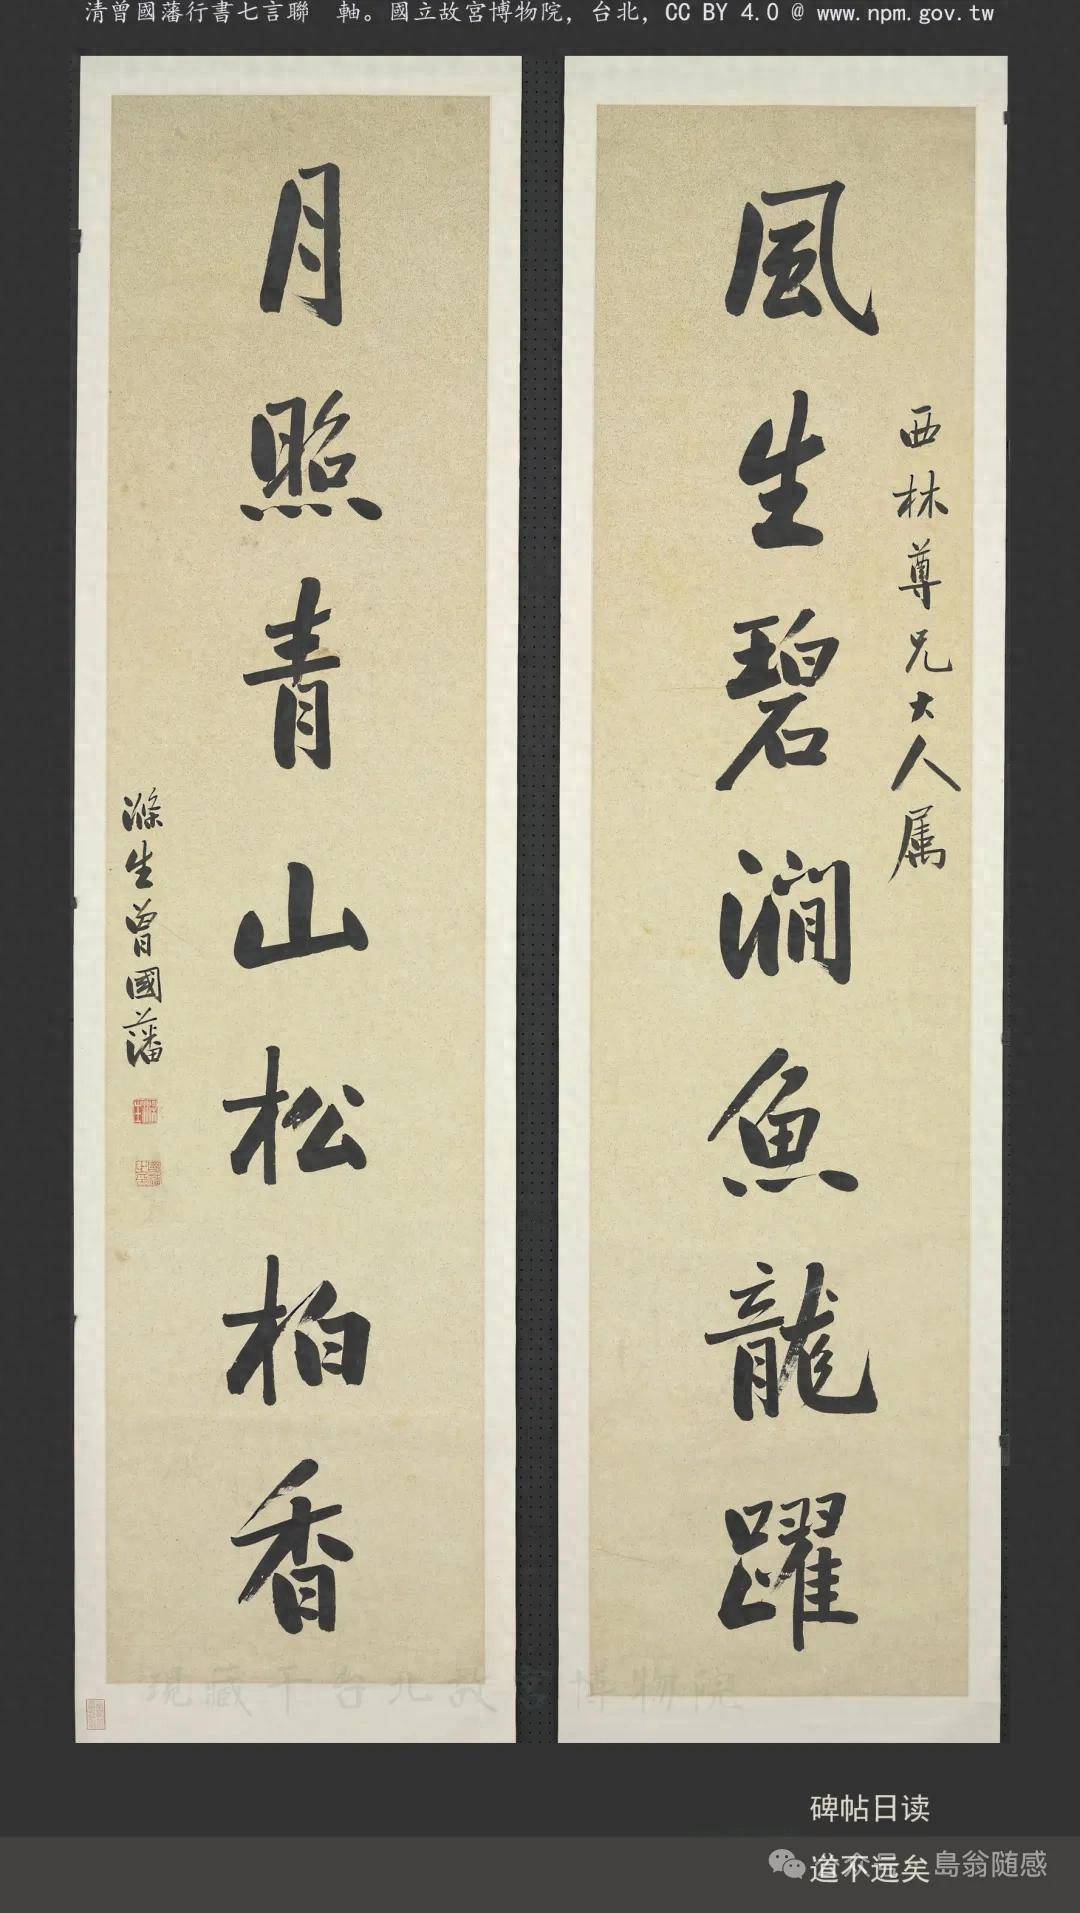 清曾國藩行書七言聯　軸。國立故宮博物院，台北，CC BY 4.0 @ www.npm.gov.tw
風生碧澗魚龍躍
西林尊兄大人属
月照青山松柏香
滌生曾國藩
現藏于台北故宮博物院
碑帖日读
道不远矣
公众号 · 島翁随感